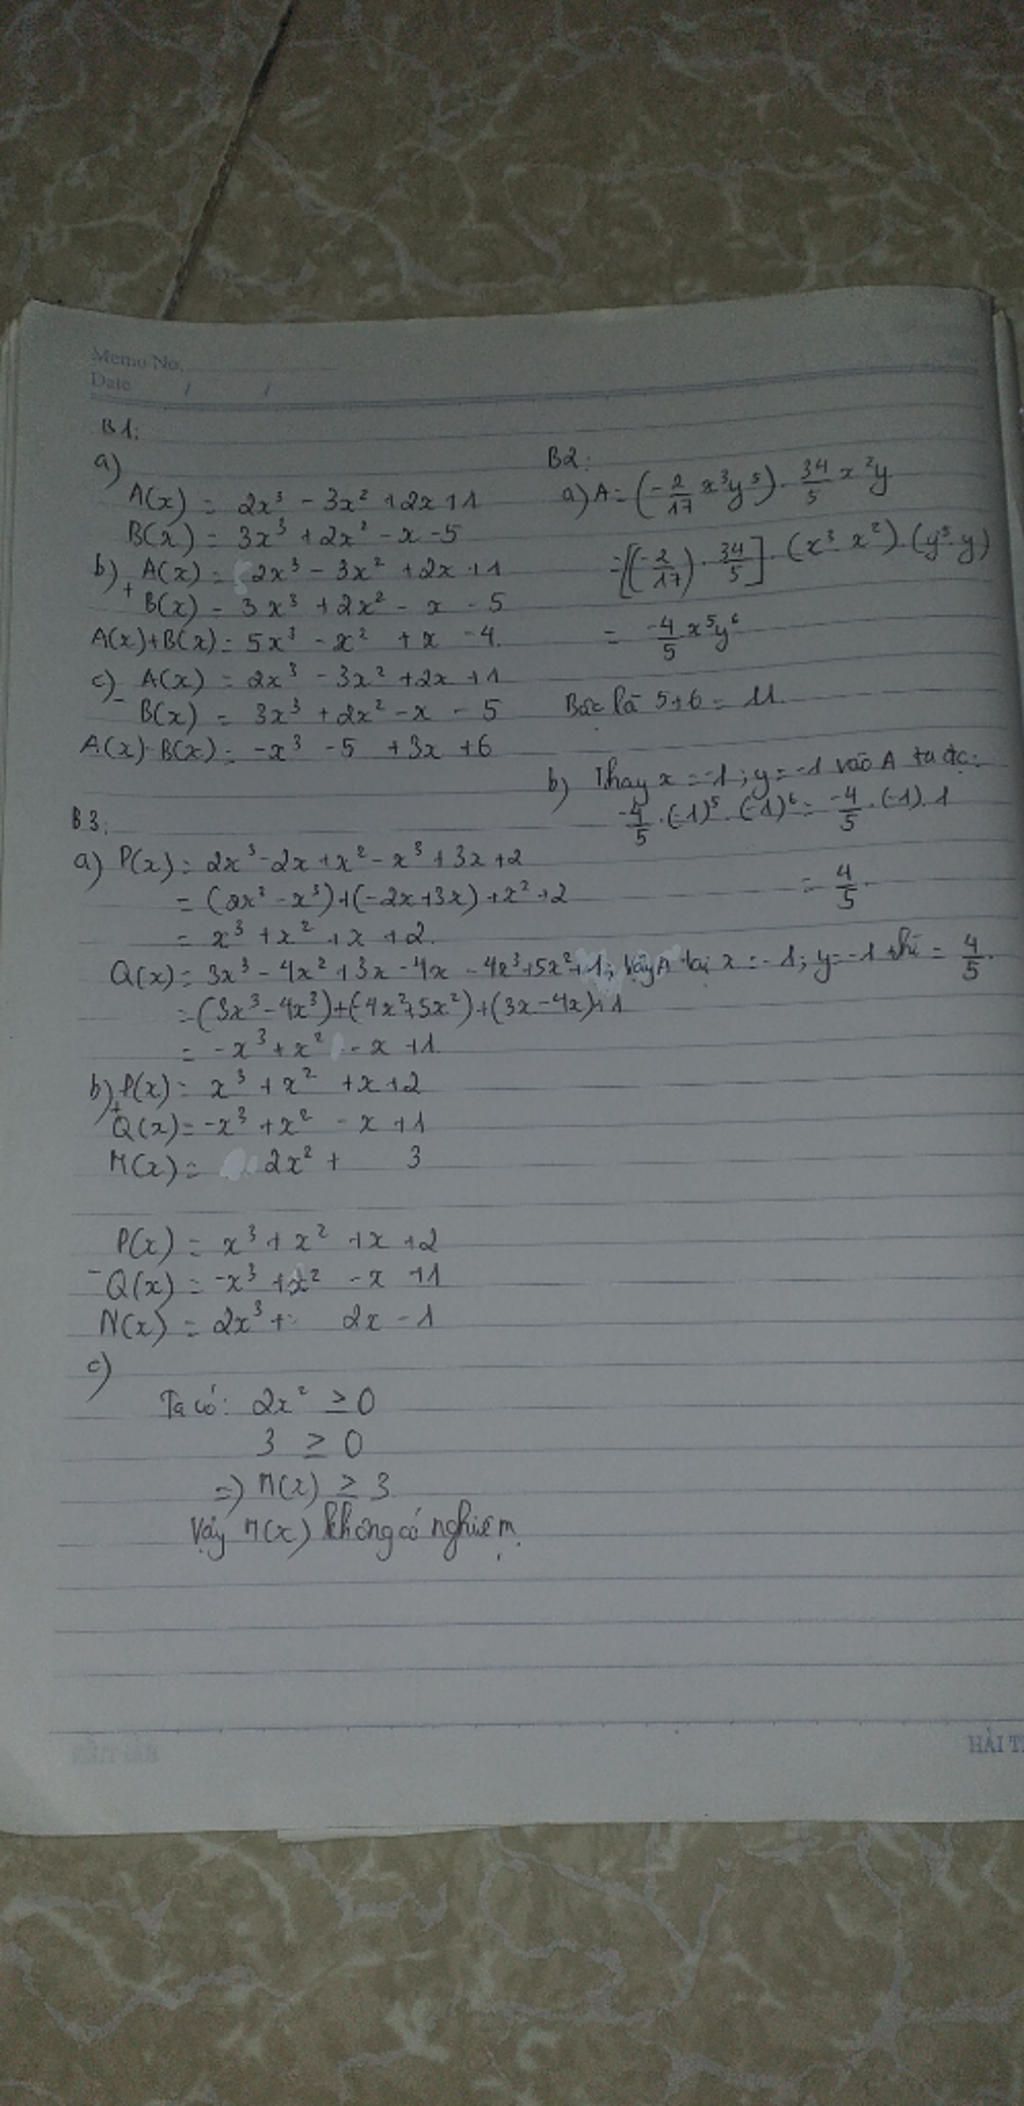 Memo No.
Date / /
B1:
a)
A(x) = 2x³ - 3x² + 2x + 1
B(x) = 3x³ + 2x² - x - 5
b) A(x) = 2x³ - 3x² + 2x + 1
+ B(x) = 3x³ + 2x² - x - 5
A(x)+B(x) = 5x³ - x² + x - 4.
c) A(x) = 2x³ - 3x² + 2x + 1
- B(x) = 3x³ + 2x² - x - 5
A(x)-B(x) = -x³ - 5 + 3x + 6
B2:
a) A = (-2/17 x³y⁵) . 34/5 x²y
= [(-2/17) . 34/5] . (x³ . x²) . (y⁵ . y)
= -4/5 x⁵y⁶
Bậc là 5+6 = 11.
b) Thay x = -1 ; y = -1 vào A ta đc:
-4/5 . (-1)⁵ . (-1)⁶ = -4/5 . (-1) . 1
= 4/5.
Vậy A tại x = -1 ; y = -1 thì = 4/5.
B3:
a) P(x) = 2x³ - 2x + x² - x³ + 3x + 2
= (2x³ - x³) + (-2x + 3x) + x² + 2
= x³ + x² + x + 2.
Q(x) = 3x³ - 4x² + 3x - 4x - 4x³ + 5x² + 1
= (3x³ - 4x³) + (-4x² + 5x²) + (3x - 4x) + 1
= -x³ + x² - x + 1
b) P(x) = x³ + x² + x + 2
+ Q(x) = -x³ + x² - x + 1
M(x) = 2x² + 3
P(x) = x³ + x² + x + 2
- Q(x) = -x³ + x² - x + 1
N(x) = 2x³ + 2x - 1
c)
Ta có: 2x² ≥ 0
3 ≥ 0
=> M(x) ≥ 3
Vậy M(x) không có nghiệm.
HẢI T